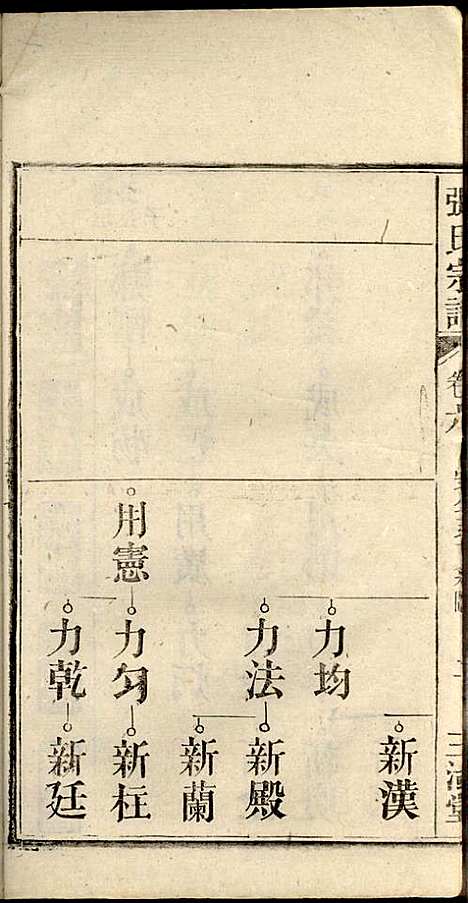 張氏宗譜
卷六
新漢
力均
力法
新殿
新蘭
用憲
力勻
新枉
力乾
新廷